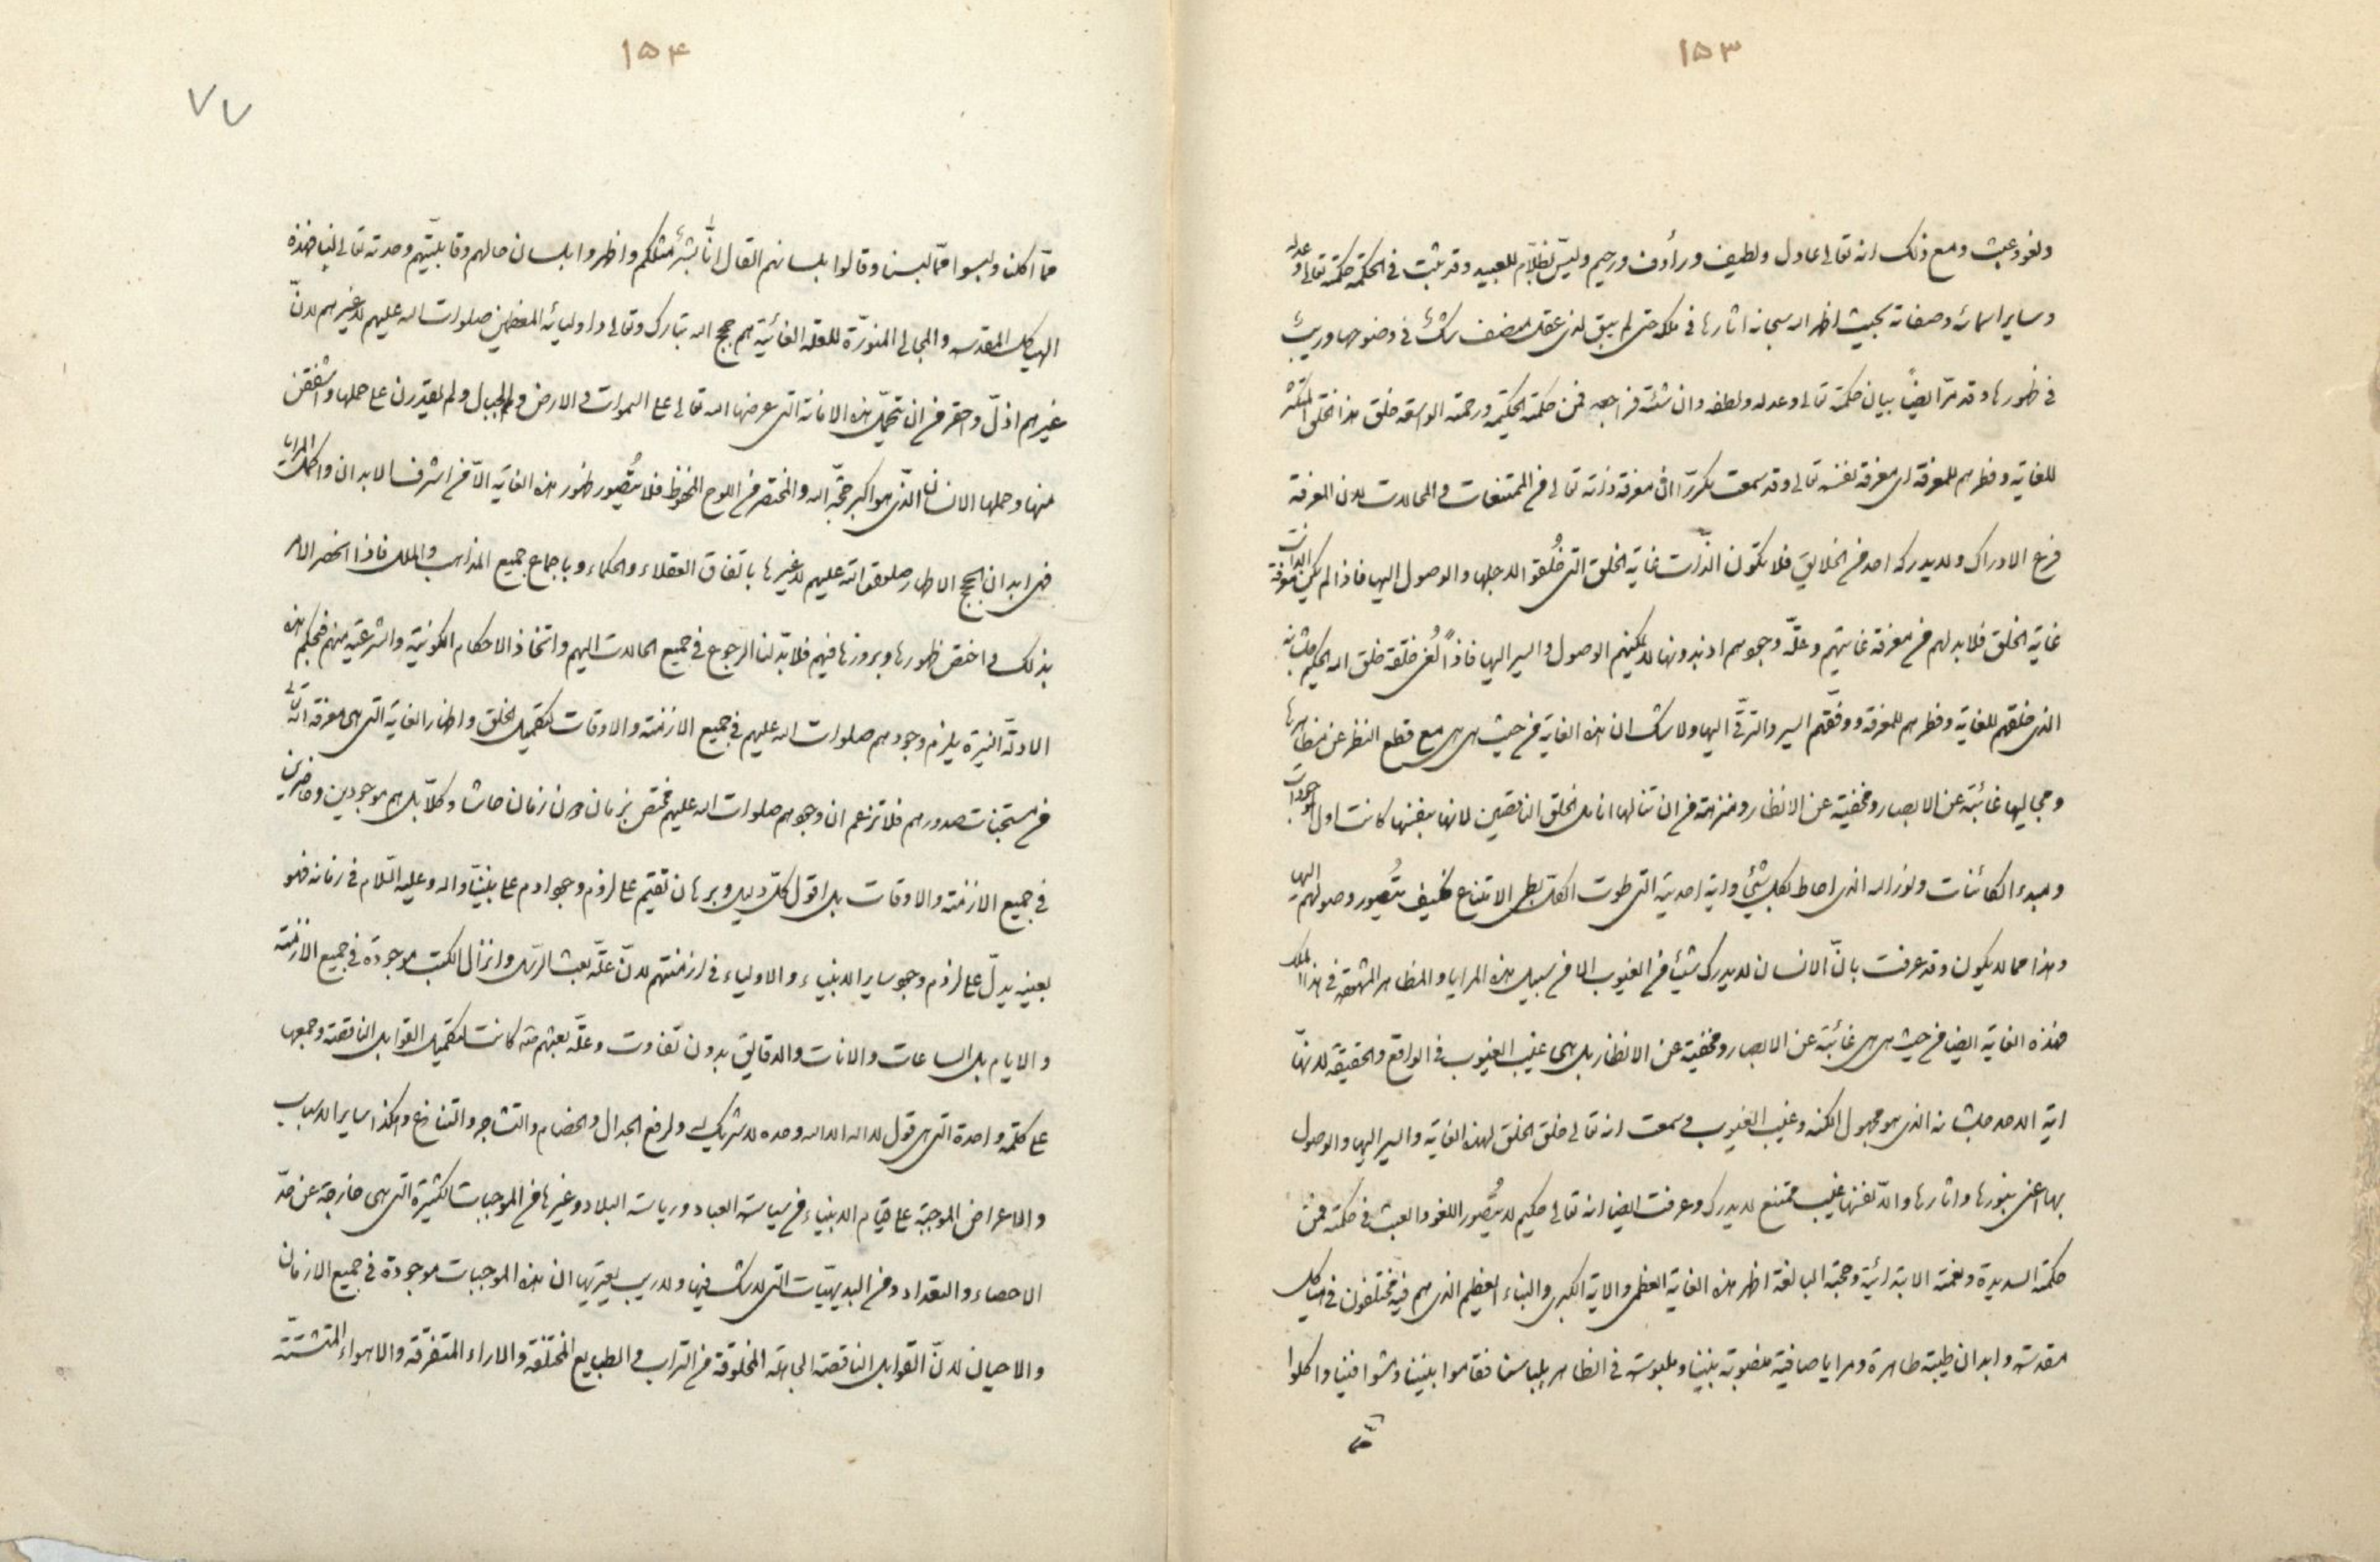 ١٥٣
ولغو وعبث ومع ذلك انه تعالى عادل ولطيف ورأوف ورحيم وليس بظلّام للعبيد وقد ثبت في الحكمة حكمته تعالى وعدله
وساير اسمائه وصفاته بحيث اظهر الله سبحانه اثارها في ملكه حتى لم يبق لذى عقل منصف شك في وضوحها وريب
في ظهورها وقد مرّ ايضاً بيان حكمته تعالى وعدله ولطفه وان شئت فراجعه فمن حكمته الحكيمة ورحمته الواسعة خلق هذا الخلق المتكثر
للغاية وفطرهم للمعرفة اى معرفة نفسه تعالى وقد سمعت مكرّراً ان معرفة ذاته تعالى من الممتنعات والمحالات لان المعرفة
فرع الادراك ولا يدركه احد من الخلايق فلا تكون الذّات غاية الخلق التى خُلقوا لاجلها والوصول اليها فاذا لم يكن معرفة الذات
غاية الخلق فلابد لهم من معرفة غايتهم وعلّة وجودهم اذ بدونها لا يمكنهم الوصول والسير اليها فاذاً لُغى خلقة خلق الله الحكيم جلشانه
الذى خلقهم للغاية وفطرهم للمعرفة ووفّقهم السير والترقّى اليها ولا شك ان هذه الغاية من حيث هى هى مع قطع النظر عن مظاهرها
ومجاليها غائبة عن الابصار ومخفية عن الانظار ومنزهة من ان تنالها انامل الخلق الناقصين لانها بنفسها كانت اول الموجودات
ومبدء الكائنات ونور الله الذى احاط بكل شئ واية احدية التى طوت الكل بطى الامتناع فكيف يتُصور وصولهم اليها
وهذا مما لا يكون وقد عرفت بانّ الانسان لا يدرك شيئا من الغيوب الا من سبيل هذه المرايا والمظاهر المشهودة في هذا الملك
فهذه الغاية ايضا من حيث هى هى غائبة عن الابصار ومخفية عن الانظار بل هى غيب الغيوب في الواقع والحقيقة لانها
اية الاحد جلشانه الذى هو مجهول الكنه وغيب الغيوب وسمعت انه تعالى خلق الخلق لهذه الغاية والسير اليها والوصول
بها اعنى بنورها واثارها والّا نفسها غيب ممتنع لا يدرك وعرفت ايضا انه تعالى حكيم لا يتُصّور اللغو والعبث في حكمته فمن
حكمته السديدة ونعمته الابتدائية وحجته البالغة اظهر هذه الغاية العظمى والاية الكبرى والنباء العظيم الذى هم فيه مختلفون في هياكل
مقدسة وابدان طيبة طاهرة ومرايا صافية منصوبة بيننا وملبوسة في الظاهر بلباسنا فقاموا بيننا ومشوا فينا واكلوا
ممّا
١٥٤
٧٧
ممّا اكلنا ولبسوا ممّا لبسنا وقالوا بلسانهم القال انّا بشر مثلكم واظهروا بلسان حالهم وقابليّتهم وحدته تعالى لنا فهذه
الهياكل المقدسة والمجالى المنوّرة للعلة الغائية هم حجج الله تبارك وتعالى واوليائه المعظمين صلوات الله عليهم لا غيرهم لانّ
غيرهم اذلّ واحقر من ان يتحمّل هذه الامانة التى عرضها الله تعالى على السموات والارض والجبال ولم يقدرن على حملها واشفقن
منها وحملها الانسان الذّى هو اكبر حجّة الله والمختصر من اللوح المحفوظ فلا يتُصّور ظهور هذه الغاية الّا من اشرف الابدان واكمل المرايا
فهى ابدان الحجج الاطهار صلوات الله عليهم لا غيرها باتفاق العقلاء والحكماء وباجماع جميع المذاهب والملل فاذا انحصر الامر
بذلك واختص ظهورها وبروزها فيهم فلابدّ لنا الرجوع في جميع الحالات اليهم واتخاذ الاحكام الكونية والشرعية منهم فبحكم هذه
الادلّة النيرة يلزم وجودهم صلوات الله عليهم في جميع الازمنة والاوقات لتكميل الخلق واظهار الغاية التى هى معرفة الله تعالى
من صدورهم فلا تزعم ان وجودهم صلوات الله عليهم مختص بزمان دون زمان حاشا وكلّا بل هم موجودين وحاضرين
في جميع الازمنة والاوقات بل اقول كلّ دليل وبرهان تقيم على لزوم وجود ادم على نبيّنا واله وعليه السّلام في زمانه فهو
بعينه يدلّ على لزوم وجود ساير الانبياء والاولياء في ازمنتهم لانّ علّة بعث الرّسل وانزال الكتب موجودة في جميع الازمنة
والايام بل الساعات والانات والدقايق بدون تفاوت وعلّة بعثهم كانت لتكميل القوابل الناقصة وجمعها
على كلمة واحدة التى هى قول لا اله الا الله وحده لا شريك له ولرفع الجدال والخصام والتشاجر والتنازع وهكذا ساير الاسباب
والاعراض الموجبة على قيام الانبياء من سياسة العباد ورياسة البلاد وغيرها من الموجبات الكثيرة التى هى خارجة عن حدّ
الاحصاء والتعداد ومن البديهيّات التى لا شك فيها ولا ريب يعتريها ان هذه الموجبات موجودة في جميع الازمان
والاحيان لانّ القوابل الناقصة الجاهلة المخلوقة من التراب والطبايع المختلفة والاراء المتفرّقة والاهواء المتشتّتة